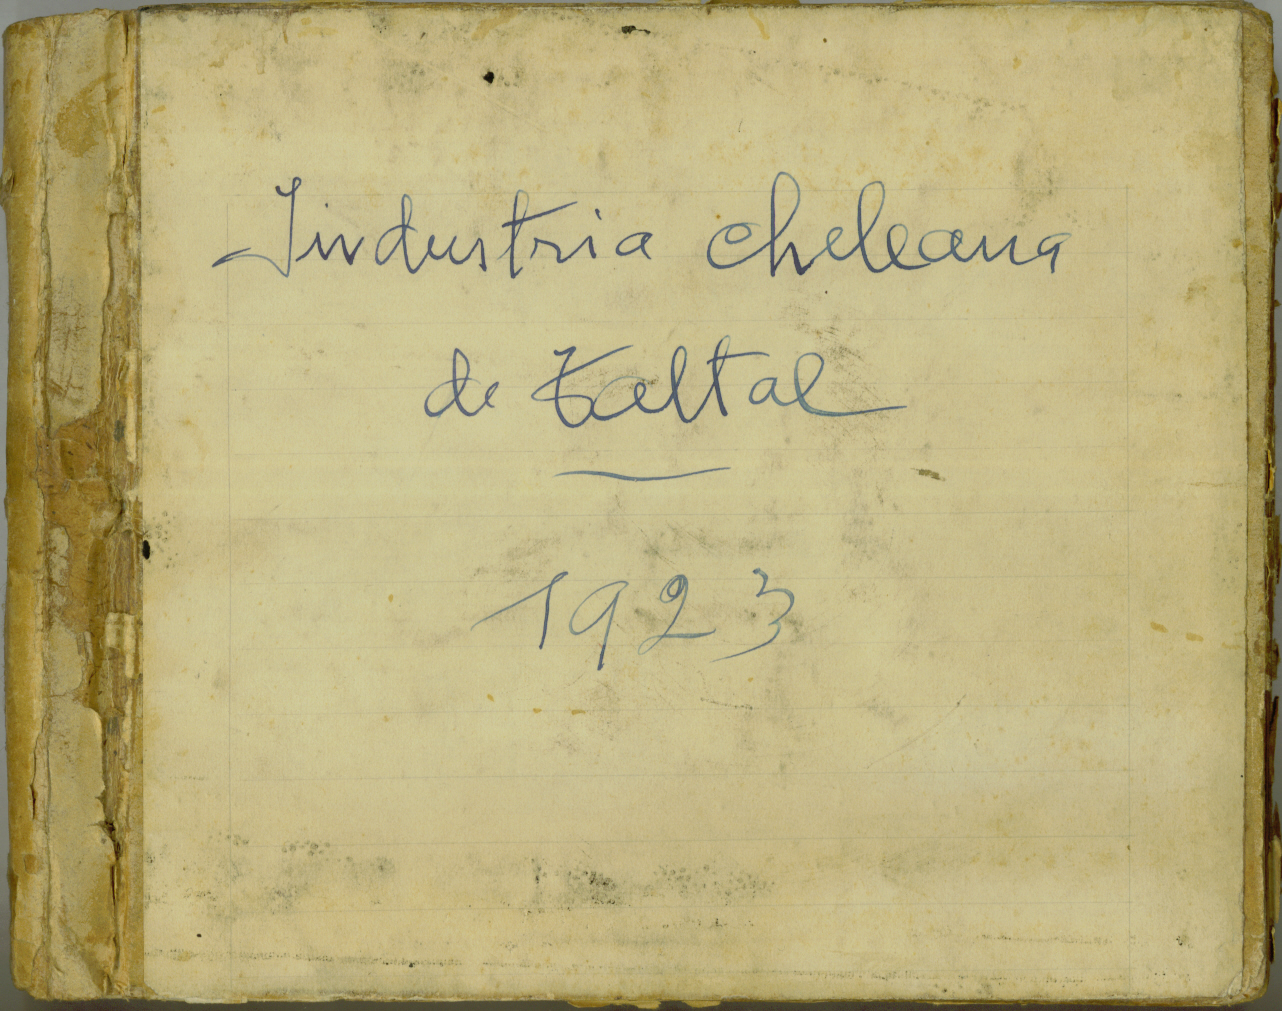 Industria cheleana
de Taltal
1923